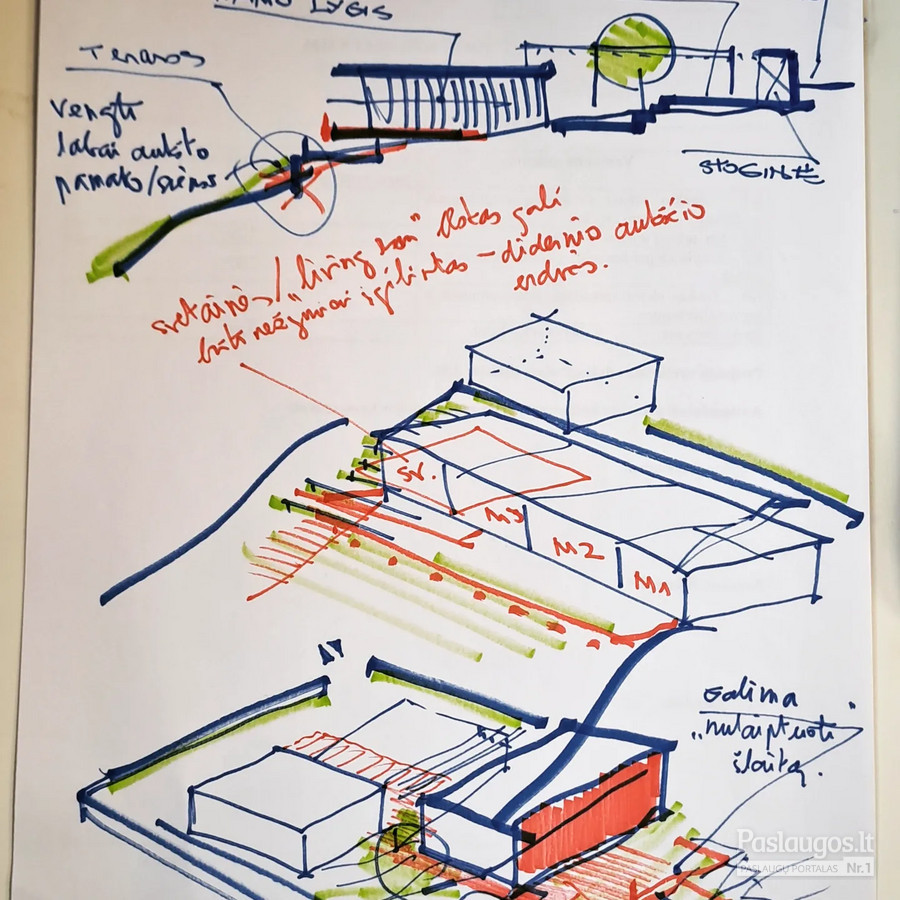 LYGIS
Terasos
vengti
labai aukšto
pamato/sienos
STOGINĖ
svetainės/"living room" plotas gali
būti nežymiai įgilintas – didesnio aukščio
erdvės.
SV.
M3
M2
M1
N
Galima
„nulaiptuoti"
šlaitą.
Paslaugos.lt
PASLAUGŲ PORTALAS Nr.1